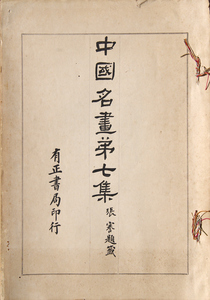 中國名畫第七集
張謇題簽
有正書局印行